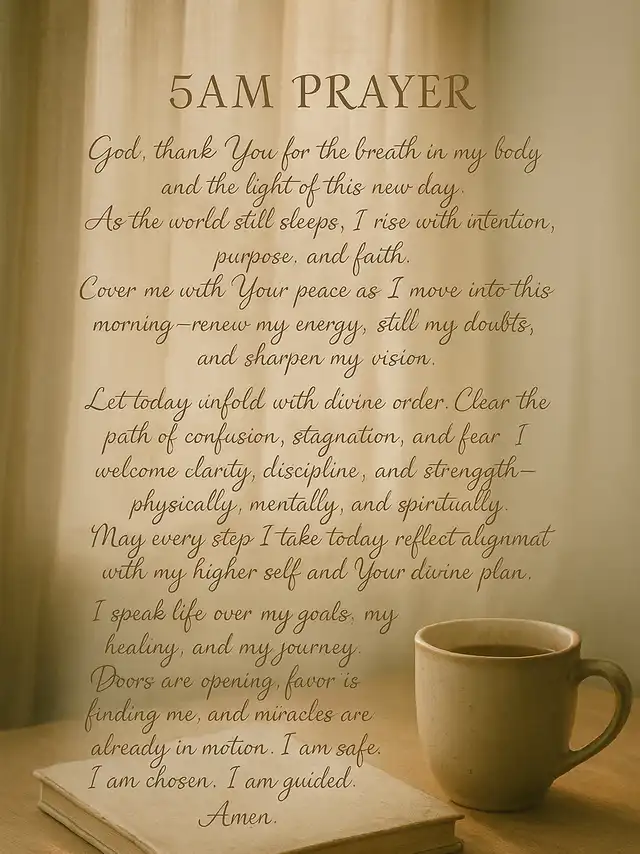 5AM PRAYER
God, thank You for the breath in my body
and the light of this new day.
As the world still sleeps, I rise with intention,
purpose, and faith.
Cover me with Your peace as I move into this
morning—renew my energy, still my doubts,
and sharpen my vision.
Let today unfold with divine order. Clear the
path of confusion, stagnation, and fear I
welcome clarity, discipline, and strenggth—
physically, mentally, and spiritually.
May every step I take today reflect alignmat
with my higher self and Your divine plan.
I speak life over my goals, my
healiny, and my journey.
Doors are opening, favor is
finding me, and miracles are
already in motion. I am safe.
I am chosen. I am guided.
Amen.